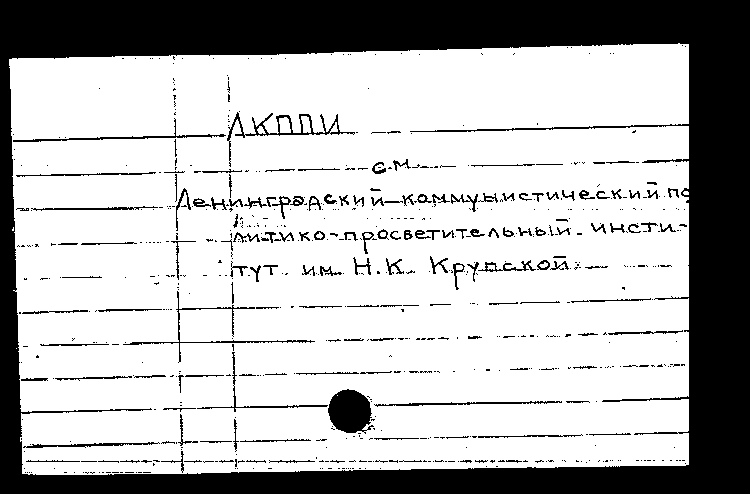 ЛКППИ
см
Ленинградский коммунистический по
литико-просветительный инсти-
тут им. Н.К. Крупской.